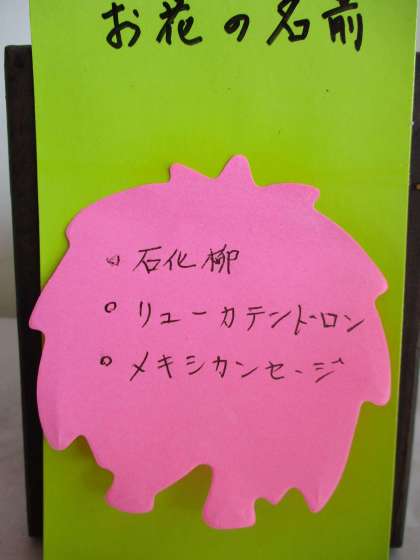 お花の名前
◦ 石化柳
◦ リューカテンドーロン
◦ メキシカンセージ